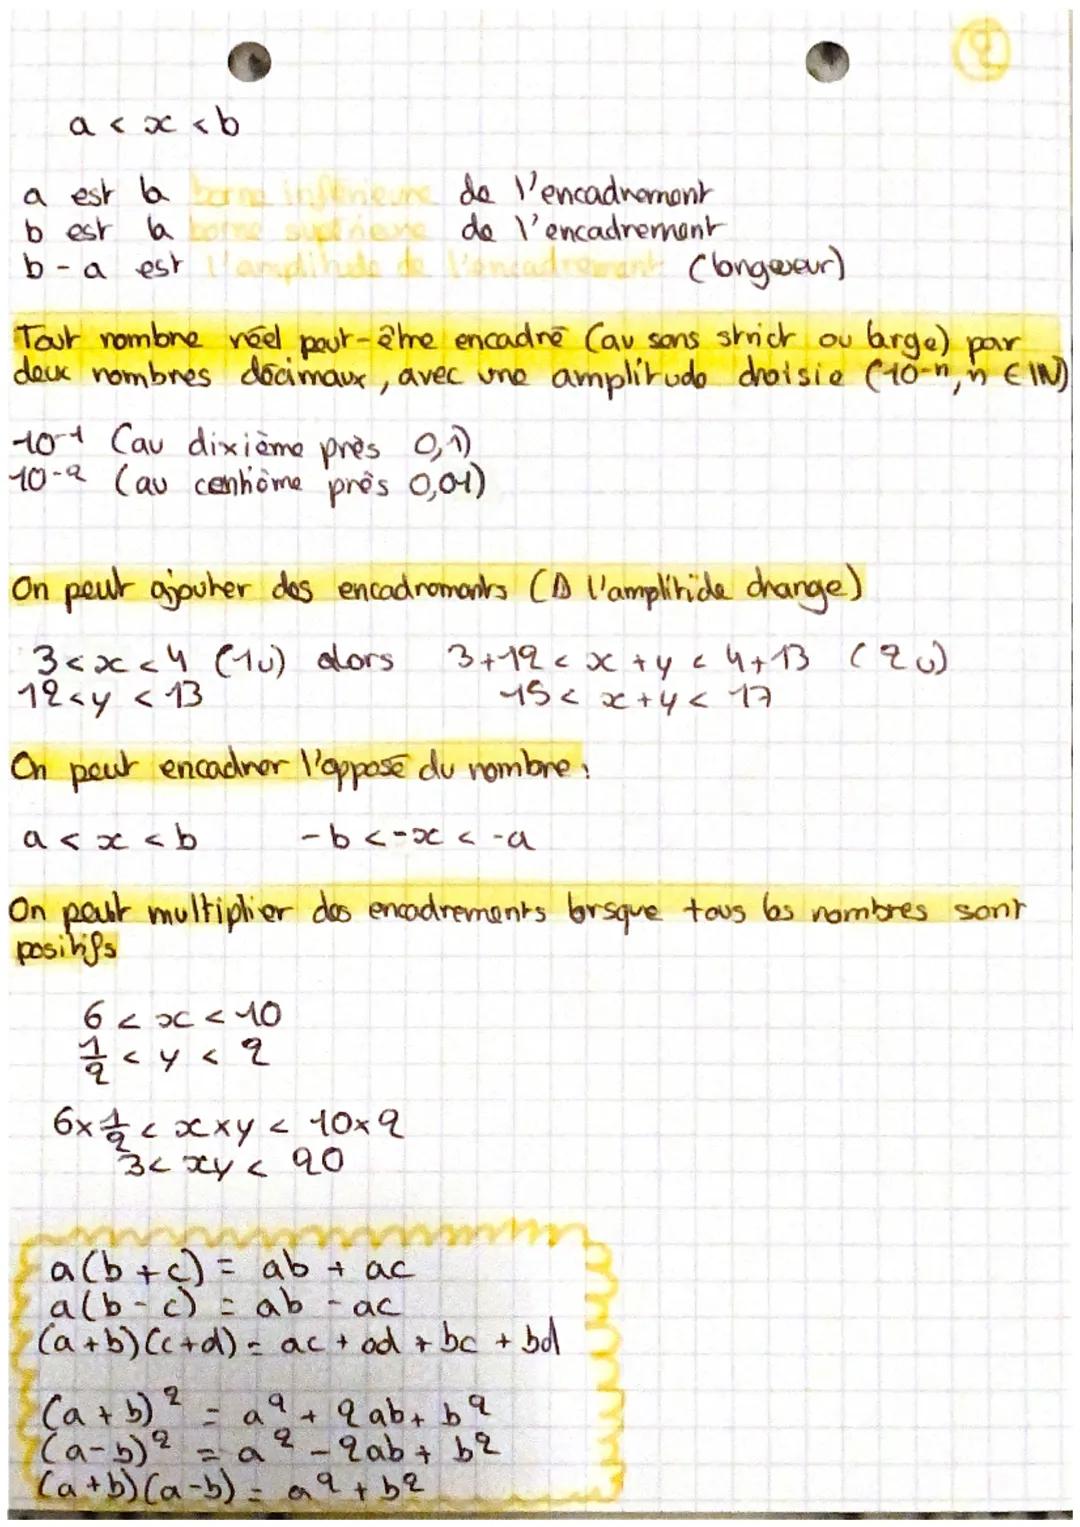 2
a < x < b
a est la borne inférieure de l'encadrement
b est la borne supérieure de l'encadrement
b - a est l'amplitude de l'encadrement (longueur)
Tout nombre réel peut-être encadré (au sens strict ou large) par
deux nombres décimaux, avec une amplitude choisie (10⁻ⁿ, n ∈ ℕ)
10⁻¹ (au dixième près 0,1)
10⁻² (au centième près 0,01)
On peut ajouter des encadrements (⚠ l'amplitide change)
3 < x < 4 (1u) alors 3+12 < x + y < 4+13 (2u)
12 < y < 13 15 < x+y < 17
On peut encadrer l'opposé du nombre :
a < x < b -b < -x < -a
On peut multiplier des encadrements lorsque tous les nombres sont
positifs
6 < x < 10
1/2 < y < 2
6×1/2 < x×y < 10×2
3 < xy < 20
a(b+c) = ab + ac
a(b-c) = ab - ac
(a+b)(c+d) = ac + ad + bc + bd
(a+b)² = a² + 2ab + b²
(a-b)² = a² - 2ab + b²
(a+b)(a-b) = a² + b²